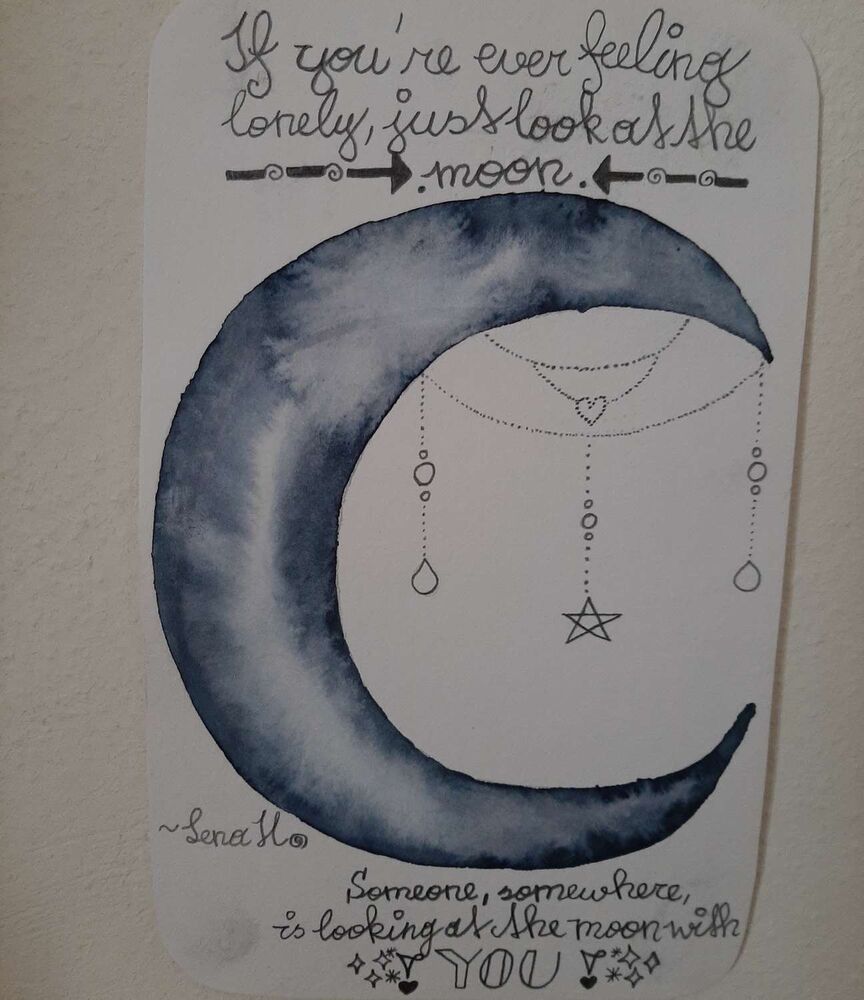 If you're ever feeling
lonely, just look at the
.moon.
~Lena H
Someone, somewhere,
is looking at the moon with
YOU